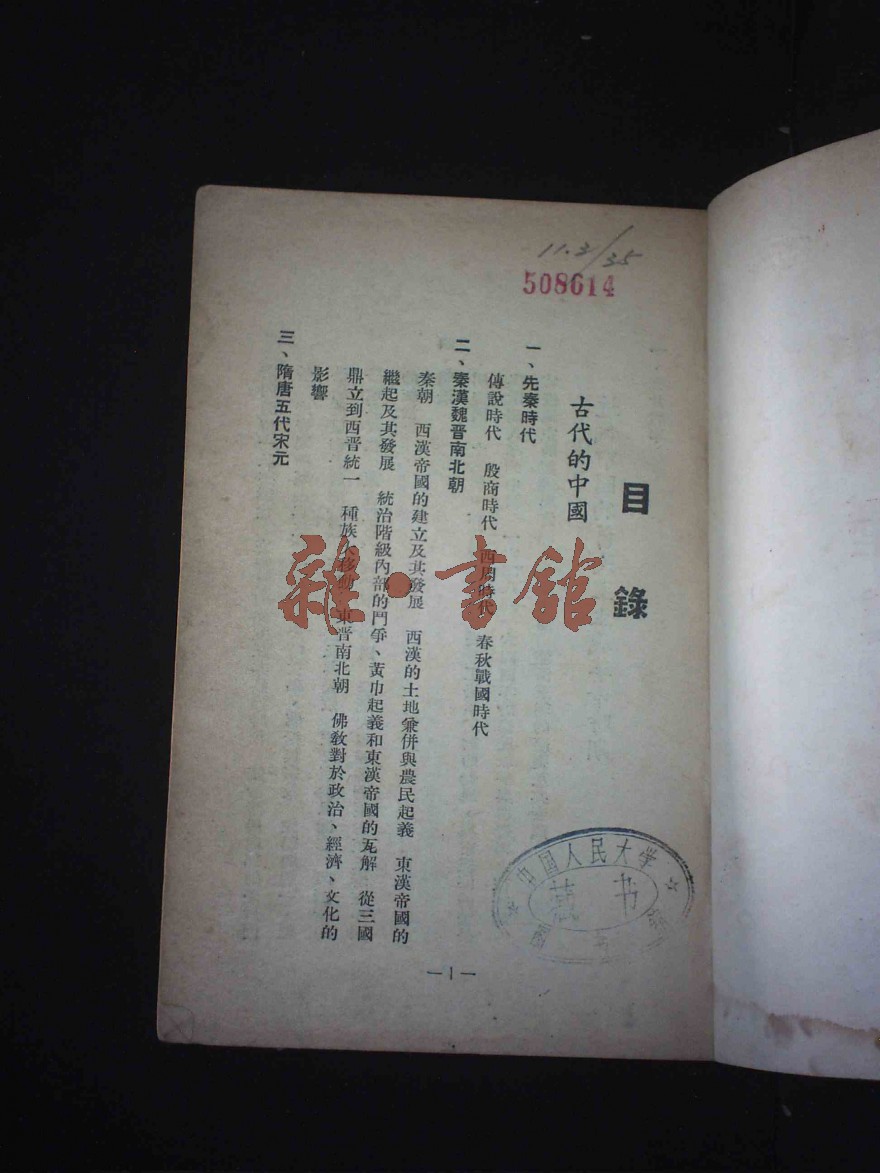 11.3/35
508614
目錄
古代的中國
一、先秦時代
傳說時代　殷商時代　西周時代　春秋戰國時代
二、秦漢魏晉南北朝
秦朝　西漢帝國的建立及其發展　西漢的土地兼併與農民起義　東漢帝國的
繼起及其發展　統治階級內部的鬥爭、黃巾起義和東漢帝國的瓦解　從三國
鼎立到西晉統一　種族大移動　東晉南北朝　佛教對於政治、經濟、文化的
影響
三、隋唐五代宋元
—1—
中国人民大学
书
雜·書館